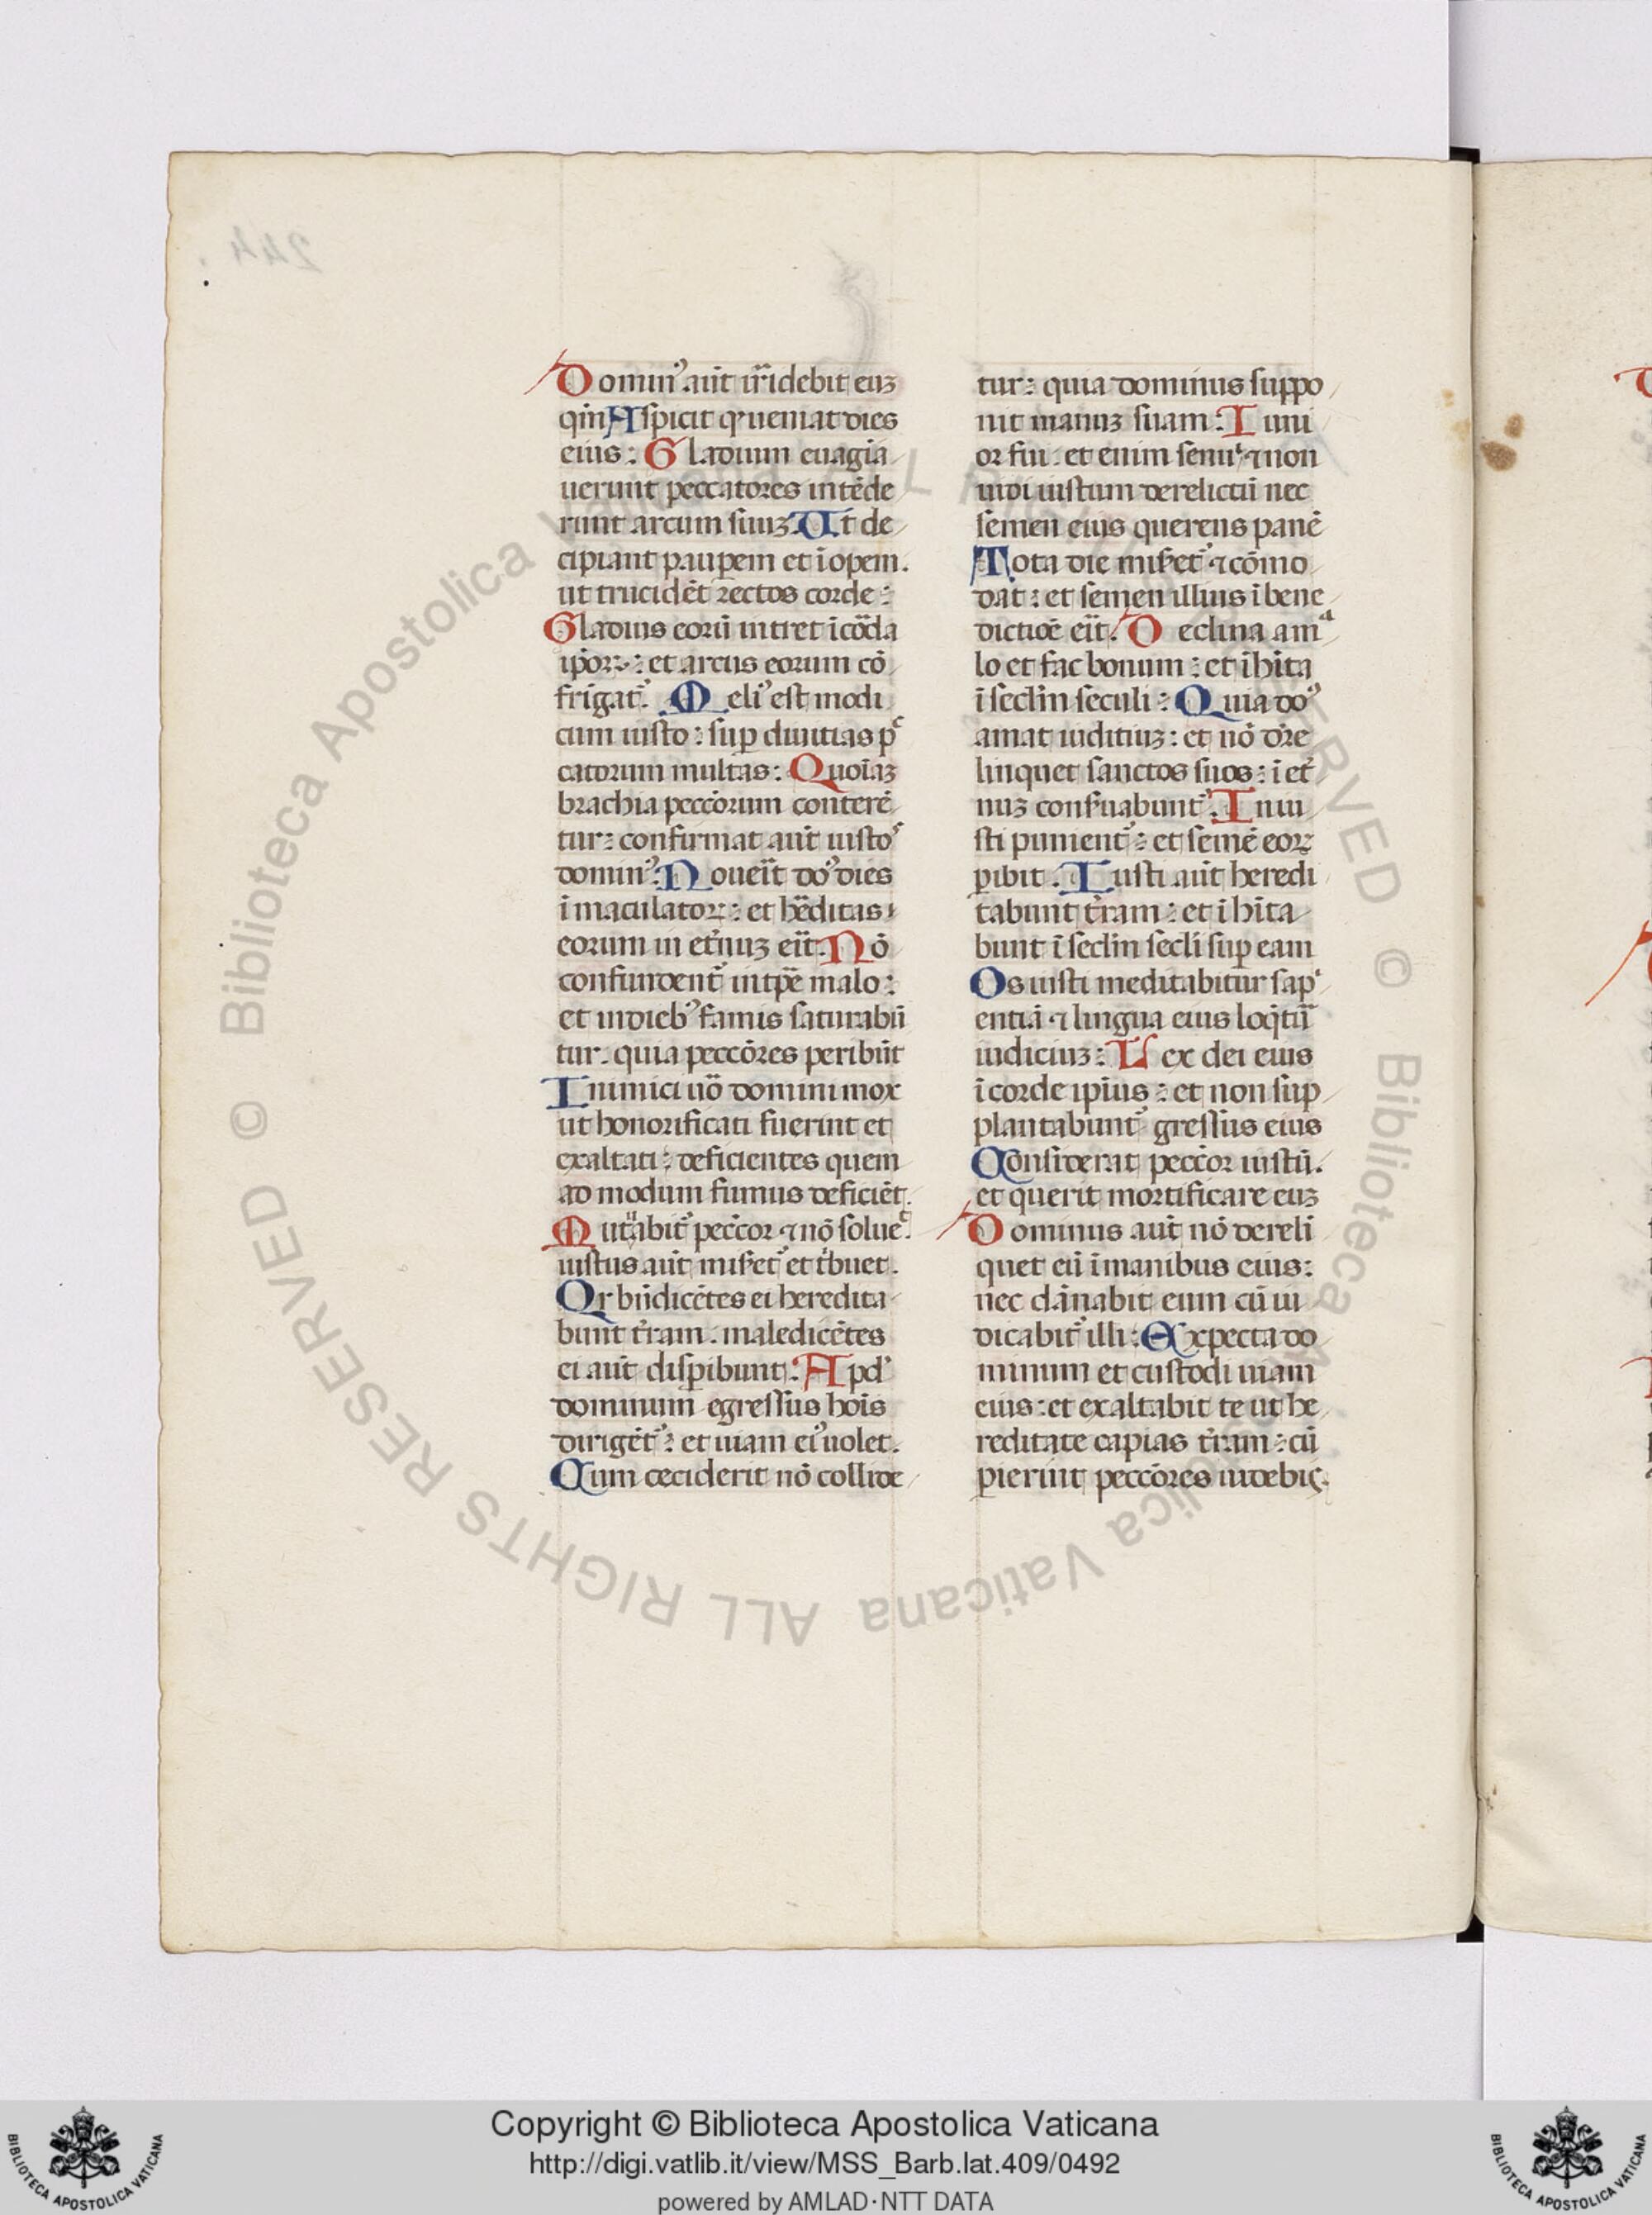 Domin᾽ aūt irridebit euꝫ
qm̄ Aspicit qͥ ueniat dies
eius: Gladium euagīa
uerunt peccatores intēde
runt arcum suuꝫ Ut de
cipiant pauꝑem et īopem.
ut trucidēt rectos corde:
Gladius eorū intret ī cōda
ipoꝝ: et arcus eorum cō
frīgat᾽. Meli᾽ est modi
cum iusto: suꝑ diuitias pͨ
catorum multas: Quoīaꝫ
brachia peccōrum conterē
tur: confirmat aūt iustoˢ
domin᾽: Nouēit do᾽ dies
īmaculatoꝝ: et hēditas
eorum in et̄nuꝫ eīt. Nō
confundent᾽ in tꝑe malo:
et in dieb᾽ famis saturabū
tur. quia peccōres peribūt
Inimici uō domini mox
ut honorificati fuerint et
exaltati: deficientes quem
ad modum fumus deficiēt.
Mutuabit᾽ peccōr ⁊ nō solueͭ.
iustus aūt miẜet᾽ et tͥbuet.
Qr bn̄dicētes ei heredita
bunt t̄ram. maledicētes
ei aūt disꝑibunt: Apd᾽
dominum egressus hoīs
dirigēt᾽: et uiam ei᾽ uolet.
Cum ceciderit nō collide
tur: quia dominus suppo
nit manuꝫ suam: Iuni
or fui. et enim senuͥ ⁊ non
uidi iustum derelictū nec
semen eius querens panē
Tota die miẜet᾽ ⁊ cōmo
dat: et semen illius ī bene
dictiōe eīt. Declina a mͣ
lo et fac bonum: et īhīta
ī sec̄lm seculi: Quia do᾽
amat iuditiuꝫ: et nō d̄re
linquet sanctos suos: ī et̄
nuꝫ conẜuabunt᾽. Iniu
sti punient᾽: et semē eoꝝ
ꝑibit. Iusti aūt heredi
tabunt t̄ram: et īhīta
bunt ī sec̄lm sec̄li suꝑ eam
Os iusti meditabitur sapͥ
entiā ⁊ lingua eius loq̄tū
iudiciuꝫ: Lex dei eius
ī corde ip̄ius: et non sup
plantabunt᾽ gressus eius
Considerat peccōr iustū.
et querit mortificare euꝫ
Dominus aūt nō dereli
quet eū ī manibus eius:
nec dānabit eum cū iu
dicabit᾽ illi: Expecta do
minum et custodi uiam
eius: et exaltabit te ut he
reditate capias t̄ram: cū
ꝑierint peccōres uidebis.
Copyright © Biblioteca Apostolica Vaticana
http://digi.vatlib.it/view/MSS_Barb.lat.409/0492
powered by AMLAD·NTT DATA
BIBLIOTECA APOSTOLICA VATICANA
BIBLIOTECA APOSTOLICA VATICANA
© Biblioteca Apostolica Vaticana ALL RIGHTS RESERVED © Biblioteca Apostolica Vaticana ALL RIGHTS RESERVED